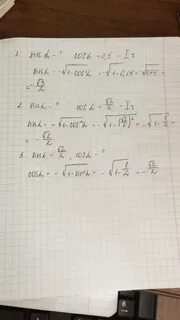 1. sin α - ? cos α = 0,5 - I ч
sin α = -√1-cos²α = -√1-0,25 = √0,75 =
= -√3/2
2. sin α - ? cos α = √2/2 - I ч
sin α = -√1-cos²α = -√1-(√2/2)² = -√1-1/2 =
= -√2/2
3. sin α = √2/2, cos α - ?
cos α = -√1-sin²α = -√1-1/2 = -√2/2